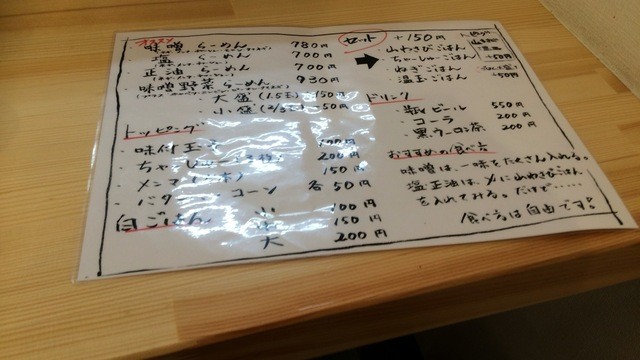 オススメ
味噌らーめん 780円
塩らーめん 700円
正油らーめん 700円
味噌野菜らーめん 930円
大盛(1.5玉) 150円
小盛(2/3玉) -50円
トッピング
・味付玉子 100円
・ちゃーしゅー 200円
・メンマ 150円
・バター・コーン 各50円
白ごはん 小 100円
150円
大 200円
セット +150円
・山わさびごはん
・ちゃーしゅーごはん
・ねぎごはん
・温玉ごはん
+50円
+50円
ドリンク
・瓶ビール 550円
・コーラ 200円
・黒ウーロン茶 200円
おすすめの食べ方
味噌は、一味をたくさん入れる。
塩正油は、〆に山わさびごはん
を入れてみる。だけど……
食べ方は自由です。